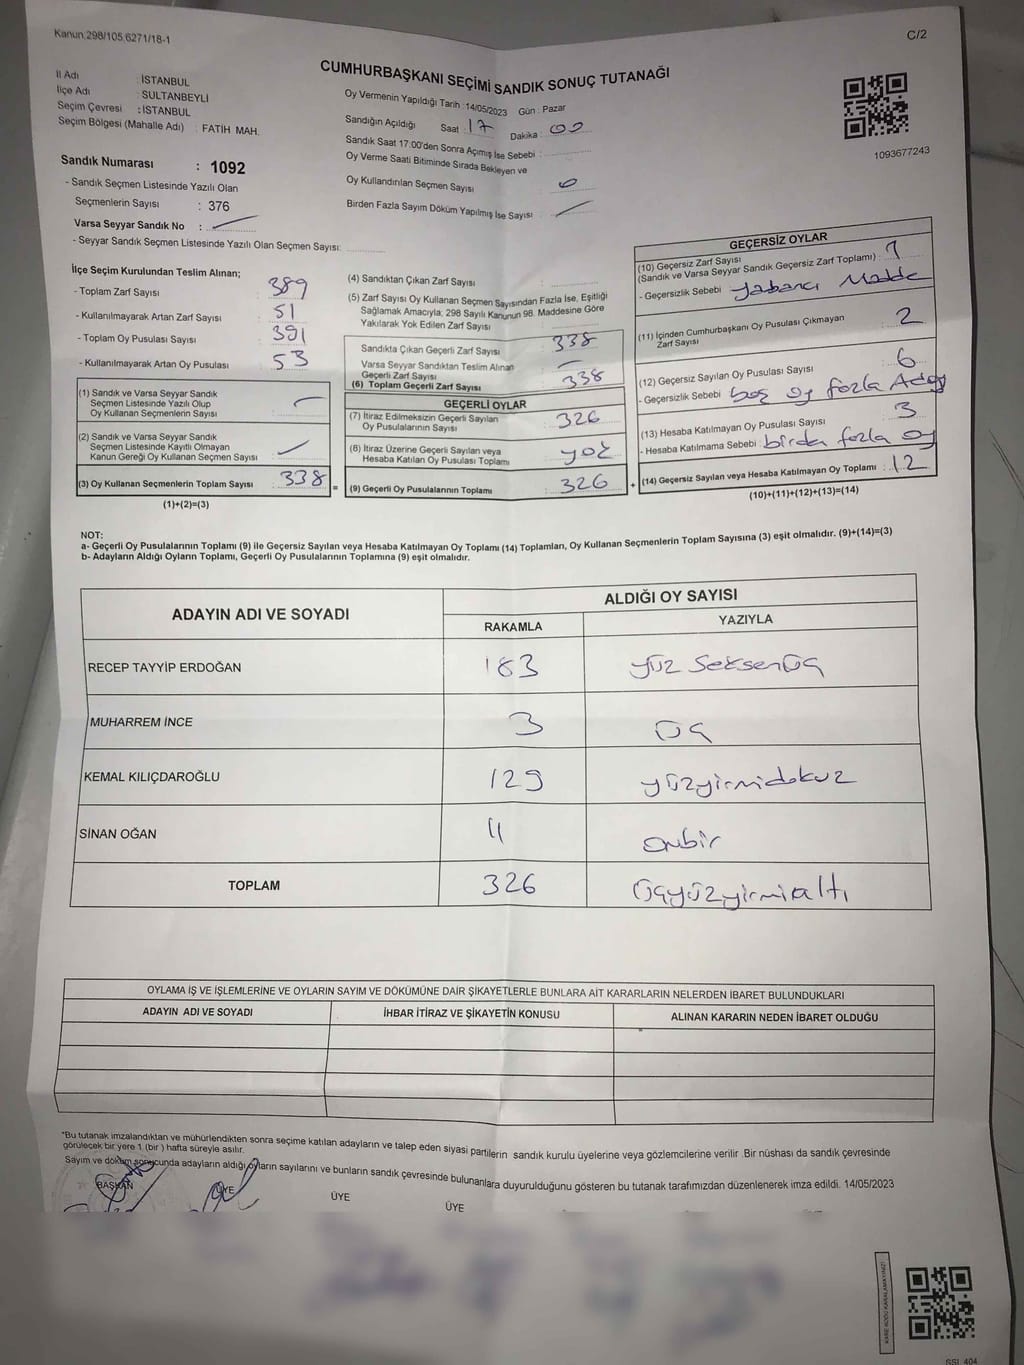 Kanun:298/105,6271/18-1
C/2
CUMHURBAŞKANI SEÇİMİ SANDIK SONUÇ TUTANAĞI
İl Adı : İSTANBUL
İlçe Adı : SULTANBEYLİ
Seçim Çevresi : İSTANBUL
Seçim Bölgesi (Mahalle Adı) : FATİH MAH.
Oy Vermenin Yapıldığı Tarih :14/05/2023 Gün : Pazar
Sandığın Açıldığı Saat : 17 Dakika : 00
Sandık Saat 17:00'den Sonra Açımış İse Sebebi :
Oy Verme Saati Bitiminde Sırada Bekleyen ve
Oy Kullandırılan Seçmen Sayısı
Birden Fazla Sayım Döküm Yapılmış İse Sayısı :
1093677243
Sandık Numarası : 1092
- Sandık Seçmen Listesinde Yazılı Olan
Seçmenlerin Sayısı : 376
Varsa Seyyar Sandık No :
- Seyyar Sandık Seçmen Listesinde Yazılı Olan Seçmen Sayısı:
İlçe Seçim Kurulundan Teslim Alınan;
- Toplam Zarf Sayısı : 389
- Kullanılmayarak Artan Zarf Sayısı : 51
- Toplam Oy Pusulası Sayısı : 391
- Kullanılmayarak Artan Oy Pusulası : 53
(1) Sandık ve Varsa Seyyar Sandık
Seçmen Listesinde Yazılı Olup
Oy Kullanan Seçmenlerin Sayısı :
(2) Sandık ve Varsa Seyyar Sandık
Seçmen Listesinde Kayıtlı Olmayan
Kanun Gereği Oy Kullanan Seçmen Sayısı :
(3) Oy Kullanan Seçmenlerin Toplam Sayısı : 338 =
(1)+(2)=(3)
(4) Sandıktan Çıkan Zarf Sayısı :
(5) Zarf Sayısı Oy Kullanan Seçmen Sayısından Fazla İse, Eşitliği
Sağlamak Amacıyla; 298 Sayılı Kanunun 98. Maddesine Göre
Yakılarak Yok Edilen Zarf Sayısı :
Sandıkta Çıkan Geçerli Zarf Sayısı : 338
Varsa Seyyar Sandıktan Teslim Alınan
Geçerli Zarf Sayısı :
(6) Toplam Geçerli Zarf Sayısı : 338
GEÇERLİ OYLAR
(7) İtiraz Edilmeksizin Geçerli Sayılan
Oy Pusulalarının Sayısı : 326
(8) İtiraz Üzerine Geçerli Sayılan veya
Hesaba Katılan Oy Pusulası Toplamı : yok
(9) Geçerli Oy Pusulalarının Toplamı : 326 +
GEÇERSİZ OYLAR
(10) Geçersiz Zarf Sayısı
(Sandık ve Varsa Seyyar Sandık Geçersiz Zarf Toplamı) : 1
- Geçersizlik Sebebi : yabancı Madde
(11) İçinden Cumhurbaşkanı Oy Pusulası Çıkmayan
Zarf Sayısı : 2
(12) Geçersiz Sayılan Oy Pusulası Sayısı : 6
- Geçersizlik Sebebi : boş oy fazla Aday
(13) Hesaba Katılmayan Oy Pusulası Sayısı : 3
- Hesaba Katılmama Sebebi : birden fazla oy
(14) Geçersiz Sayılan veya Hesaba Katılmayan Oy Toplamı : 12
(10)+(11)+(12)+(13)=(14)
NOT:
a- Geçerli Oy Pusulalarının Toplamı (9) ile Geçersiz Sayılan veya Hesaba Katılmayan Oy Toplamı (14) Toplamları, Oy Kullanan Seçmenlerin Toplam Sayısına (3) eşit olmalıdır. (9)+(14)=(3)
b- Adayların Aldığı Oyların Toplamı, Geçerli Oy Pusulalarının Toplamına (9) eşit olmalıdır.
ADAYIN ADI VE SOYADI
ALDIĞI OY SAYISI
RAKAMLA YAZIYLA
RECEP TAYYİP ERDOĞAN 183 yüz Seksenüç
MUHARREM İNCE 3 üç
KEMAL KILIÇDAROĞLU 129 yüzyirmidokuz
SİNAN OĞAN 11 onbir
TOPLAM 326 üçyüzyirmialtı
OYLAMA İŞ VE İŞLEMLERİNE VE OYLARIN SAYIM VE DÖKÜMÜNE DAİR ŞİKAYETLERLE BUNLARA AİT KARARLARIN NELERDEN İBARET BULUNDUKLARI
ADAYIN ADI VE SOYADI İHBAR İTİRAZ VE ŞİKAYETİN KONUSU ALINAN KARARIN NEDEN İBARET OLDUĞU
*Bu tutanak imzalandıktan ve mühürlendikten sonra seçime katılan adayların ve talep eden siyasi partilerin sandık kurulu üyelerine veya gözlemcilerine verilir .Bir nüshası da sandık çevresinde
görülecek bir yere 1 (bir ) hafta süreyle asılır.
Sayım ve döküm sonucunda adayların aldığı oyların sayılarını ve bunların sandık çevresinde bulunanlara duyurulduğunu gösteren bu tutanak tarafımızdan düzenlenerek imza edildi. 14/05/2023
BAŞKAN ÜYE ÜYE ÜYE